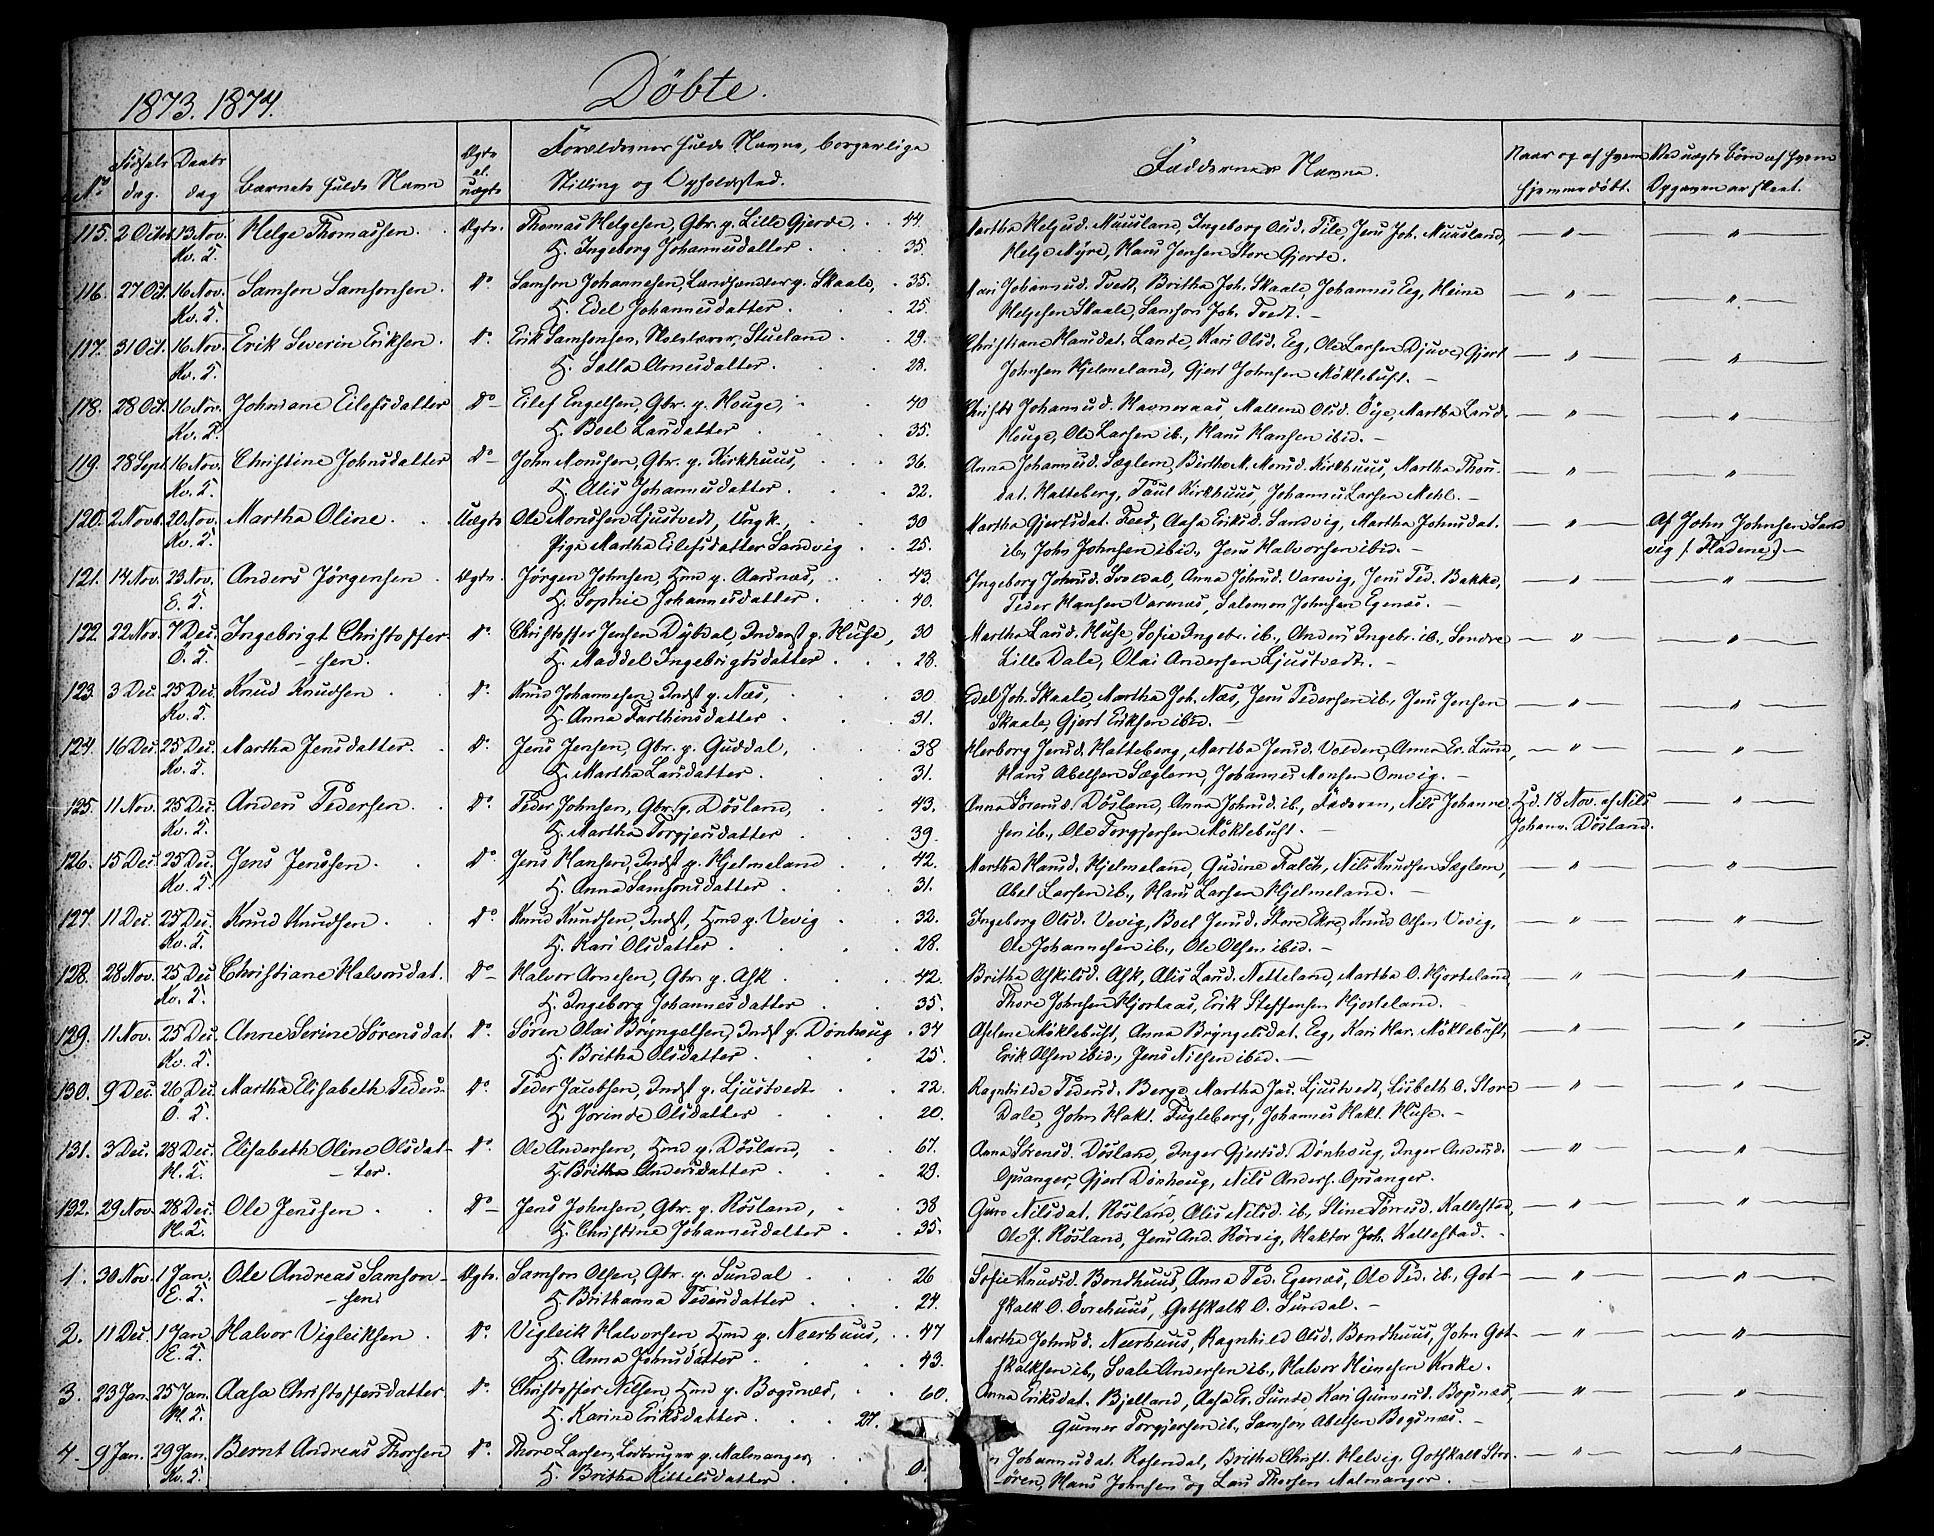 1873. 1874.
Döbte.
No
Födsels dag.
Daabs dag
Barnets fulde Navn
Ægte el. uægte
Forældrenes fulde Navne, borgerlige
Stilling og Opholdssted.
Faddernes Navne.
Naar og af hvem
hjemmedöbt.
Ved uægte Börn af hvem
Opgaven er skeet.
115. 2 Octob. 13 Nov. Helge Thomassen. Ægte. Thomas Helgesen, Gbr. p. Lille Gjerde, 44 Martha Helgesd. Muusland, Ingeborg Olsd. File, Jens Joh. Muusland, — " — — " —
Kv. S. H. Ingeborg Johannesdatter 35. Helge Myre, Hans Jensen Store Gjerde.
116. 27 Oct. 16 Nov. Samson Samsonsen. Do Samson Johannesen, Landhandler p. Skaale, 35. Mari Johannesd. Tvedt, Britha Joh. Skaale, Johannes Eeg, Heine — " — — " —
Kv. S. H. Edel Johannesdatter 25. Helgesen Skaale, Samson Joh. Tvedt. —
117. 31 Oct. 16 Nov. Erik Severin Eriksen. Do Erik Samsonsen, Skolelærer, Stueland 29. Christiane Hansdat. Lande, Kari Olsd. Eeg, Ole Larsen Djuve, Gjert — " — — " —
Kv. S. H. Salla Arnesdatter. 28. Johnsen Hjelmeland, Gjert Johnsen Möklebust. —
118. 28 Oct. 16 Nov. Johniane Eilefsdatter Do — Eilef Engelsen, Gbr. p. Houge, 40 Christi Johannesd. Havneraas, Mallene Olsd. Öye, Martha Larsd. — " — — " —
Kv. S. H. Boel Larsdatter 35. Houge, Ole Larsen ib., Hans Hansen ibid. —
119. 28 Sept. 16 Nov. Christine Johnsdatter Do — John Monssen, Gbr. p. Kirkhuus, 36. Anna Johannesd. Sæglem, Birthe M. Monsd. Kirkhuus, Martha Thors- — " — — " —
Kv. S. H. Alis Johannesdatter. 32. dat. Hatteberg, Paul Kirkhuus, Johannes Larsen Mehl. —
120. 2 Novb. 20 Nov. Martha Oline. Uægte Ole Monssen Ljustvedt, Ungk., 30 Martha Gjertsdat. Feed, Aasa Eriksd. Sandvig, Martha Johnsdat. — " — Af John Johnsen Sand-
Kv. S. Pige Martha Eilefsdatter Sandvig 25. ib., John Johnsen ibid., Jens Halvorsen ibid. — vig (Fladene). —
121. 14 Nov. 23 Nov. Anders Jörgensen Ægte. Jörgen Johnsen, Hmd p. Aarsnæs, 43. Ingeborg Johnsd. Svoldal, Anna Johnsd. Varevig, Jens Ped. Bakke, — " — — " —
E. S. H. Sophie Johannesdatter 40. Peder Hansen Varenæs, Salomon Johnsen Egenæs. —
122. 22 Nov. 7 Dec. Ingebrigt Christoffer- Do Christoffer Jensen Dybdal, Inderst p. Huse, 30 Martha Larsd. Huse, Sofie Ingebr. ib., Anders Ingebr. ib., Sondre — " — — " —
Ö. S. — sen. H. Maddel Ingebrigtsdatter 28. Lille Dale, Olai Andersen Ljustvedt. —
123. 3 Dec. 25 Dec. Knud Knudsen Do Knud Johannesen, Indst p. Næs, 30 Edel Joh. Skaale, Martha Joh. Næs, Jens Pedersen ib., Jens Jensen — " — — " —
Kv. S. H. Anna Farthinsdatter 31. Skaale, Gjert Eriksen ibid. —
124. 16 Dec. 25 Dec. Martha Jensdatter. Do Jens Jensen, Gbr. p. Guddal, 38 Herborg Jensd. Hatteberg, Martha Jensd. Valden, Anna Er. Lund, — " — — " —
Kv. S. H. Martha Larsdatter. 31. Hans Abelsen Sæglem, Johannes Monsen Omvig. —
125. 11 Nov. 25 Dec. Anders Pedersen. Do Peder Johnsen, Gbr. p. Dösland, 43. Anna Sörensd. Dösland, Anna Johnsd. ib., Faderen, Nils Johanne- Hd. 18 Nov. af Nils — " —
Kv. S. H. Martha Torgjersdatter 39. sen ib., Ole Torgjersen Möklebust. — Johann. Dösland.
126. 15 Dec. 25 Dec. Jens Jenssen. Do Jens Hansen, Indst p. Hjelmeland 42. Martha Hansd. Hjelmeland, Gudine Falck, Nils Knudsen Sæglem, — " — — " —
Kv. S. H. Anna Samsonsdatter 31. Abel Larsen ib., Hans Larsen Hjelmeland. —
127. 11 Dec. 25 Dec. Knud Knudsen. Do Knud Knudsen, Indst, Hmd p. Uevig 32. Ingeborg Olsd. Uevig, Boel Jensd. Store Ekre, Knud Olsen Uevig, — " — — " —
Kv. S. H. Kari Olsdatter 28. Ole Johannesen ib., Ole Olsen ibid. —
128. 28 Nov. 25 Dec. Christiane Halvorsdat. Do — Halvor Arnesen, Gbr. p. Ask 42. Britha Askilsd. Ask, Alis Larsd. Netteland, Martha O. Hjorteland, — " — — " —
Kv. S. H. Ingeborg Johannesdatter 35. Thore Johnsen Hjortaas, Erik Steffensen Hjorteland.
129. 11 Nov. 25 Dec. Anne Serine Sörensdat. Do Sören Olai Bryngelsen, Indst p. Dönhoug 34 Aselene Möklebust, Anna Bryngelsdat. Eeg, Kari Har. Möklebust, — " — — " —
Kv. S. H. Britha Olsdatter 25. Erik Olsen ibid., Jens Nilsen ibid. —
130. 9 Dec. 26 Dec. Martha Elisabeth Peders- Do Peder Jacobsen, Indst p. Ljustvedt 22. Ragnhilde Pedersd. Berge, Martha Jac. Ljustvedt, Lisbeth O. Store — " — — " —
Ö. S. H. Jorinde Olsdatter 20. Dale, John Hakt. Fugleberg, Johannes Hakt. Huse. —
131. 3 Dec. 28 Dec. Elisabeth Oline Olsdat- Do Ole Andersen, Hmd p. Dösland, 67. Anna Sörensd. Dösland, Inger Gjertsd. Dönhoug, Inger Andersd. — " — — " —
Pl. S. — ter. H. Britha Andersdatter 29. Opsanger, Gjert Dönhoug, Nils Anders. Opsanger.
132. 29 Nov. 28 Dec. Ole Jenssen Do — Jens Johnsen, Gbr. p. Rösland, 38 Guro Nilsdat. Rösland, Alis Nilsd. ib., Stine Törresd. Kallestad, — " — — " —
Pl. S. H. Christine Johannesdatter 35. Ole J. Rösland, Jens And. Rörvig, Haktor Joh. Kallestad.
1. 30 Nov. 1 Jan. Ole Andreas Samson- Ægte. Samson Olsen, Gbr. p. Sundal 26 Sofie Knudsd. Bondhuus, Anna Ped. Egenæs, Ole Ped. ib., Got- — " — — " —
E. S. — sen. H. Brithanna Pedersdatter 24. skalk O. Övrehuus, Gotskalk O. Sundal. —
2. 11 Dec. 1 Jan. Halvor Vigleiksen Do Vigleik Halvorsen, Hmd p. Neerhuus, 47 Martha Johnsd. Neerhuus, Ragnhild Olsd. Bondhuus, John Got- — " — — " —
E. S. H. Anna Johnsdatter 43. skalksen ib., Svale Andersen ib., Halvor Heinesen Kroke.
3. 23 Jan. 25 Jan. Aasa Christoffersdatter Do Christoffer Nilsen, Hmd p. Bogsnæs, 60. Anna Eriksdat. Bjelland, Aasa Er. Sunde, Kari Gunnersd. Bogsnæs, — " — — " —
Pl. S. H. Karine Eriksdatter. 27. Gunner Torgjersen ib., Samson Abelsen Bogsnæs. —
4. 9 Jan. 29 Jan. Bernt Andreas Thorsen Do Thore Larsen, Leilænding p. Malmanger, Johannesdat. Rosendal, Britha Christ. Helvig, Gotskalk — " — — " —
Kv. S. H. Britha Kittelsdatter 0. ören, Hans Johnsen og Lars Thorsen Malmanger.